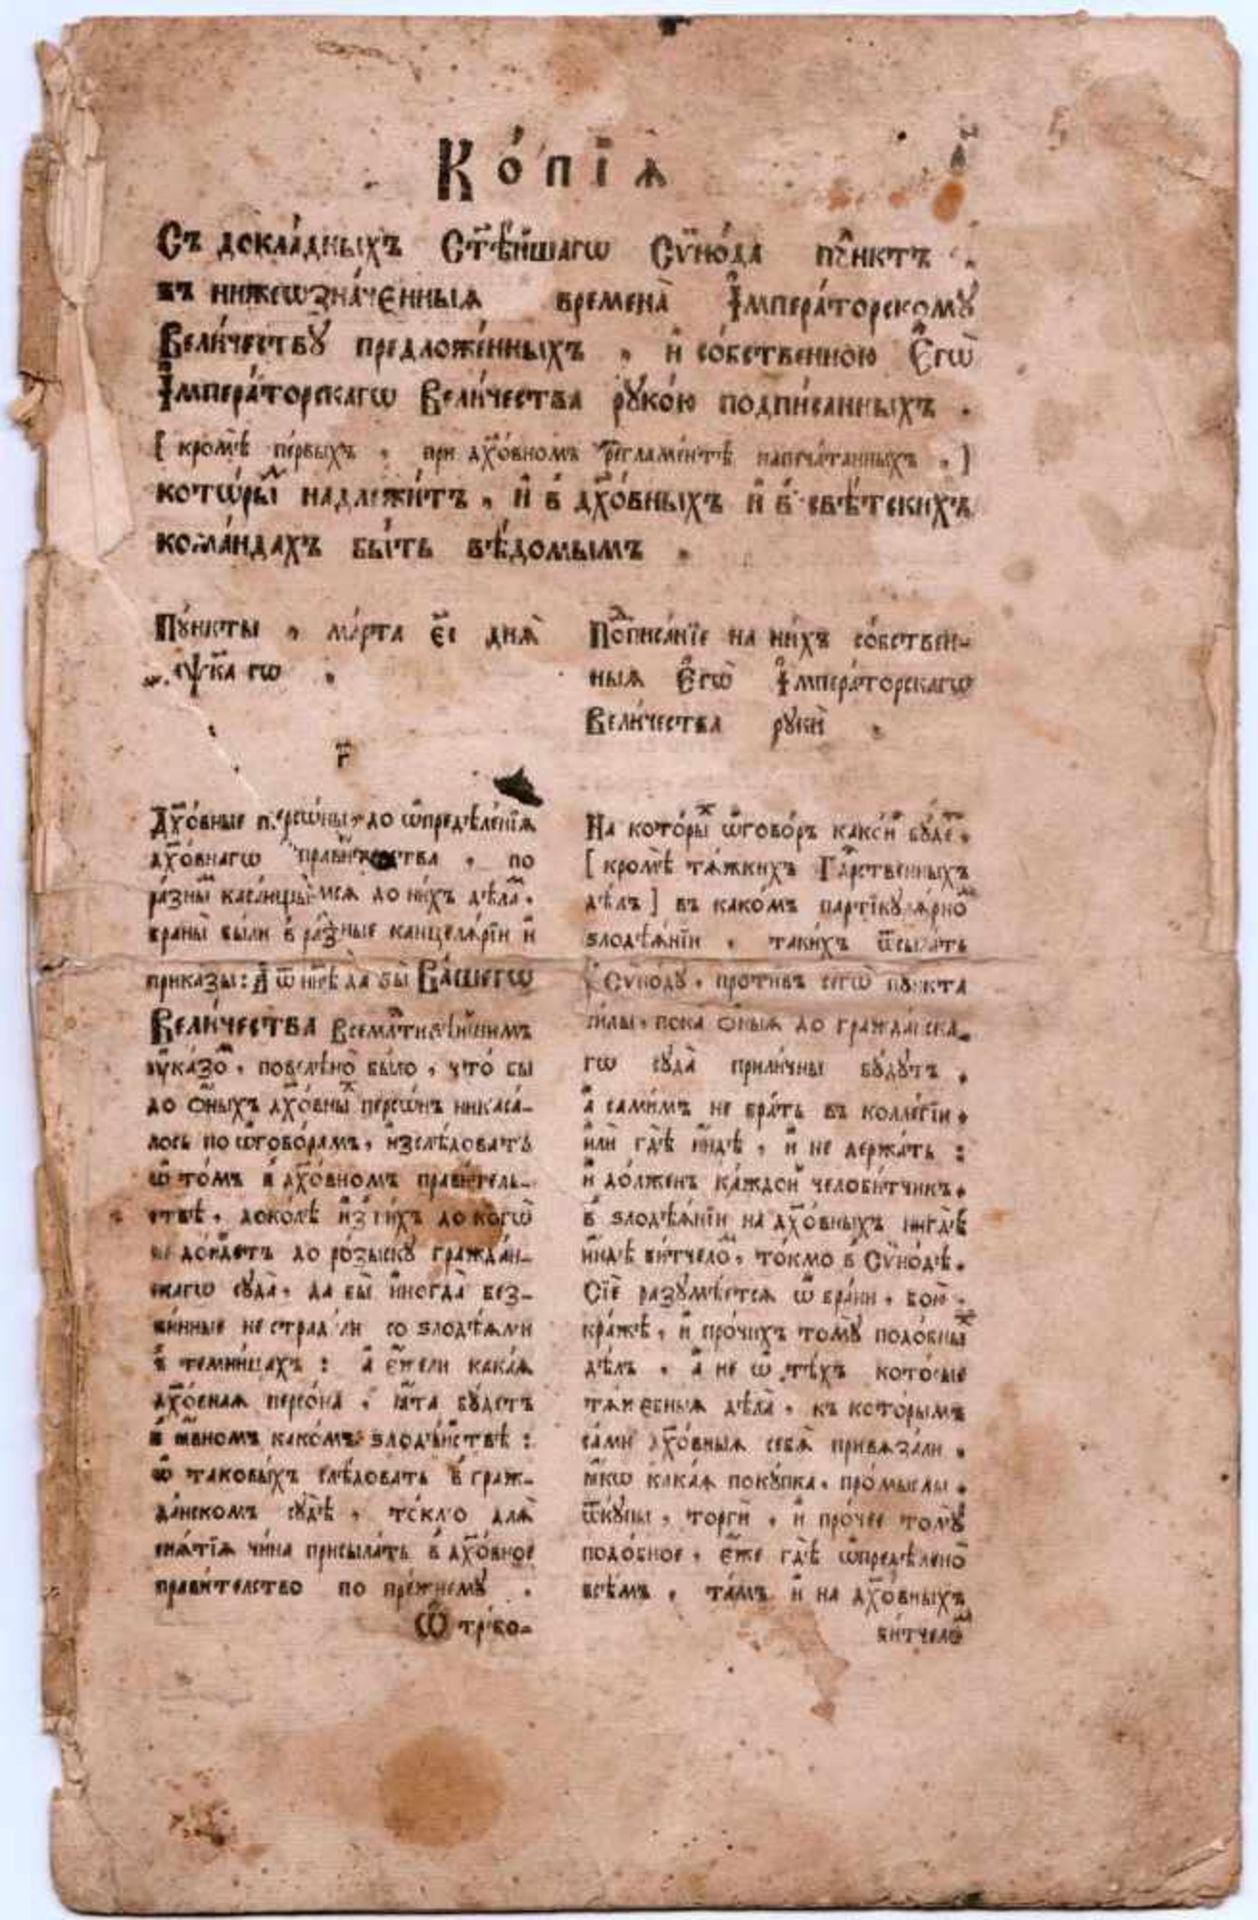 Ко́пїѧ
Съ докла́дныхъ Ст҃ѣ́йшагѡ Сѵно́да пꙋ́нктъ
въ нижеѡзна́ченныѧ времена̀ І҆мпера́торскомꙋ
Вели́чествꙋ предложе́нныхъ , и҆ со́бственною Е҆гѡ̀
І҆мпера́торскагѡ Вели́чества рꙋко́ю подпи́санныхъ .
[ кромѣ̀ пе́рвыхъ , при дꙋхо́вномъ регла́ментѣ напеча́танныхъ , ]
кото́рый надлежи́тъ , и҆ в дꙋхо́вныхъ и҆ в свѣ́тскихъ
кома́ндахъ бы́ть вѣ́домымъ .
Пꙋ́нкты , ма́рта є҃і днѧ̀
҂аѱк҃а гѡ .
г҃
Дꙋхо́вные персѡ́ны , до ѡ҆предѣле́нїѧ
дꙋхо́внагѡ прави́телства , по
ра́зным каса́ющымсѧ до ни́хъ дѣла́м ,
браны̀ бы́ли в ра́зные канцелѧ́рїи и҆
приказы : А҆ ѿ нн҃ѣ да бы̀ Ва́шегѡ
Вели́чества Всемлⷭ҇тивѣ́йшимъ
ꙋ҆ка́зом , повелѣно̀ бы́ло , что́ бы
до ѻ҆́ныхъ дꙋхо́вных персѡ́нъ никаса-
лось по ѡ҆гово́рамъ , и҆зслѣ́довать
ѡ҆ то́мъ в дꙋхо́вномъ прави́тель-
ствѣ , доко́лѣ и҆з ни́хъ до когѡ̀
не до́йдетъ до ро́зыскꙋ гражда́н-
скагѡ сꙋда̀ , да бы̀ и҆ногда̀ без-
ви́нные не страда́ли со злодѣ́ѧми
в темни́цахъ : а҆ є҆́жели кака́ѧ
дꙋхо́внаѧ персо́на , ꙗ҆та бꙋ́детъ
в ꙗ҆́вномъ како́мъ злодѣ́йствѣ :
ѡ҆ таковы́хъ слѣ́довать в граж-
да́нскомъ сꙋдѣ̀ , то́кмо длѧ̀
снѧ́тїѧ чи́на присыла́ть в дꙋхо́вное
прави́телство по пре́жнемꙋ .
Ѡ҆ тре́бо-
Подписа́нїе на ни́хъ со́бствен-
ныѧ Е҆гѡ̀ І҆мпера́торскагѡ
Вели́чества рꙋкѝ .
На кото́рых ѡ҆гово́ръ како́й бꙋ́дет ,
[ кромѣ̀ тѧ́жкихъ Гдⷭ҇рственныхъ
дѣ́лъ ] въ како́мъ партїкꙋлѧ́рном
злодѣѧ́нїи , таки́хъ ѿсыла́ть
к Сѵно́дꙋ , проти́въ сегѡ̀ пꙋ́нкта
си́лы , пока ѻ҆́ныѧ до гражда́нска-
гѡ сꙋда̀ прили́чны бꙋ́дꙋтъ ,
а҆ сами́мъ не бра́ть въ колле́гїи ,
и҆ли гдѣ̀ и҆ндѣ̀ , и҆ не держа́ть :
и҆ до́лженъ ка́ждой челоби́тчикъ ,
в злодѣѧ́нїи на дꙋхо́вныхъ нигдѣ̀
и҆ндѣ̀ би́тчелом , то́кмо в Сѵно́дѣ .
Сїѐ разꙋмѣ́етсѧ ѡ҆ бра́ни , бою̀ ,
кра́жѣ , и҆ про́чихъ томꙋ̀ подо́бных
дѣ́лъ , а҆ не ѡ҆ тѣ́хъ кото́рые
тѧ́жебныѧ дѣла̀ , къ кото́рымъ
са́ми дꙋхо́вныѧ себѧ̀ привѧза́ли ,
ꙗ҆́кѡ кака́ѧ покꙋ́пка , про́мыслы ,
ѿкꙋпы , торгѝ , и҆ про́чее томꙋ̀
подо́бное , є҆́же гдѣ̀ ѡ҆предѣлено̀
всѣ́мъ , та́мъ и҆ на дꙋхо́вныхъ
би́тчелом